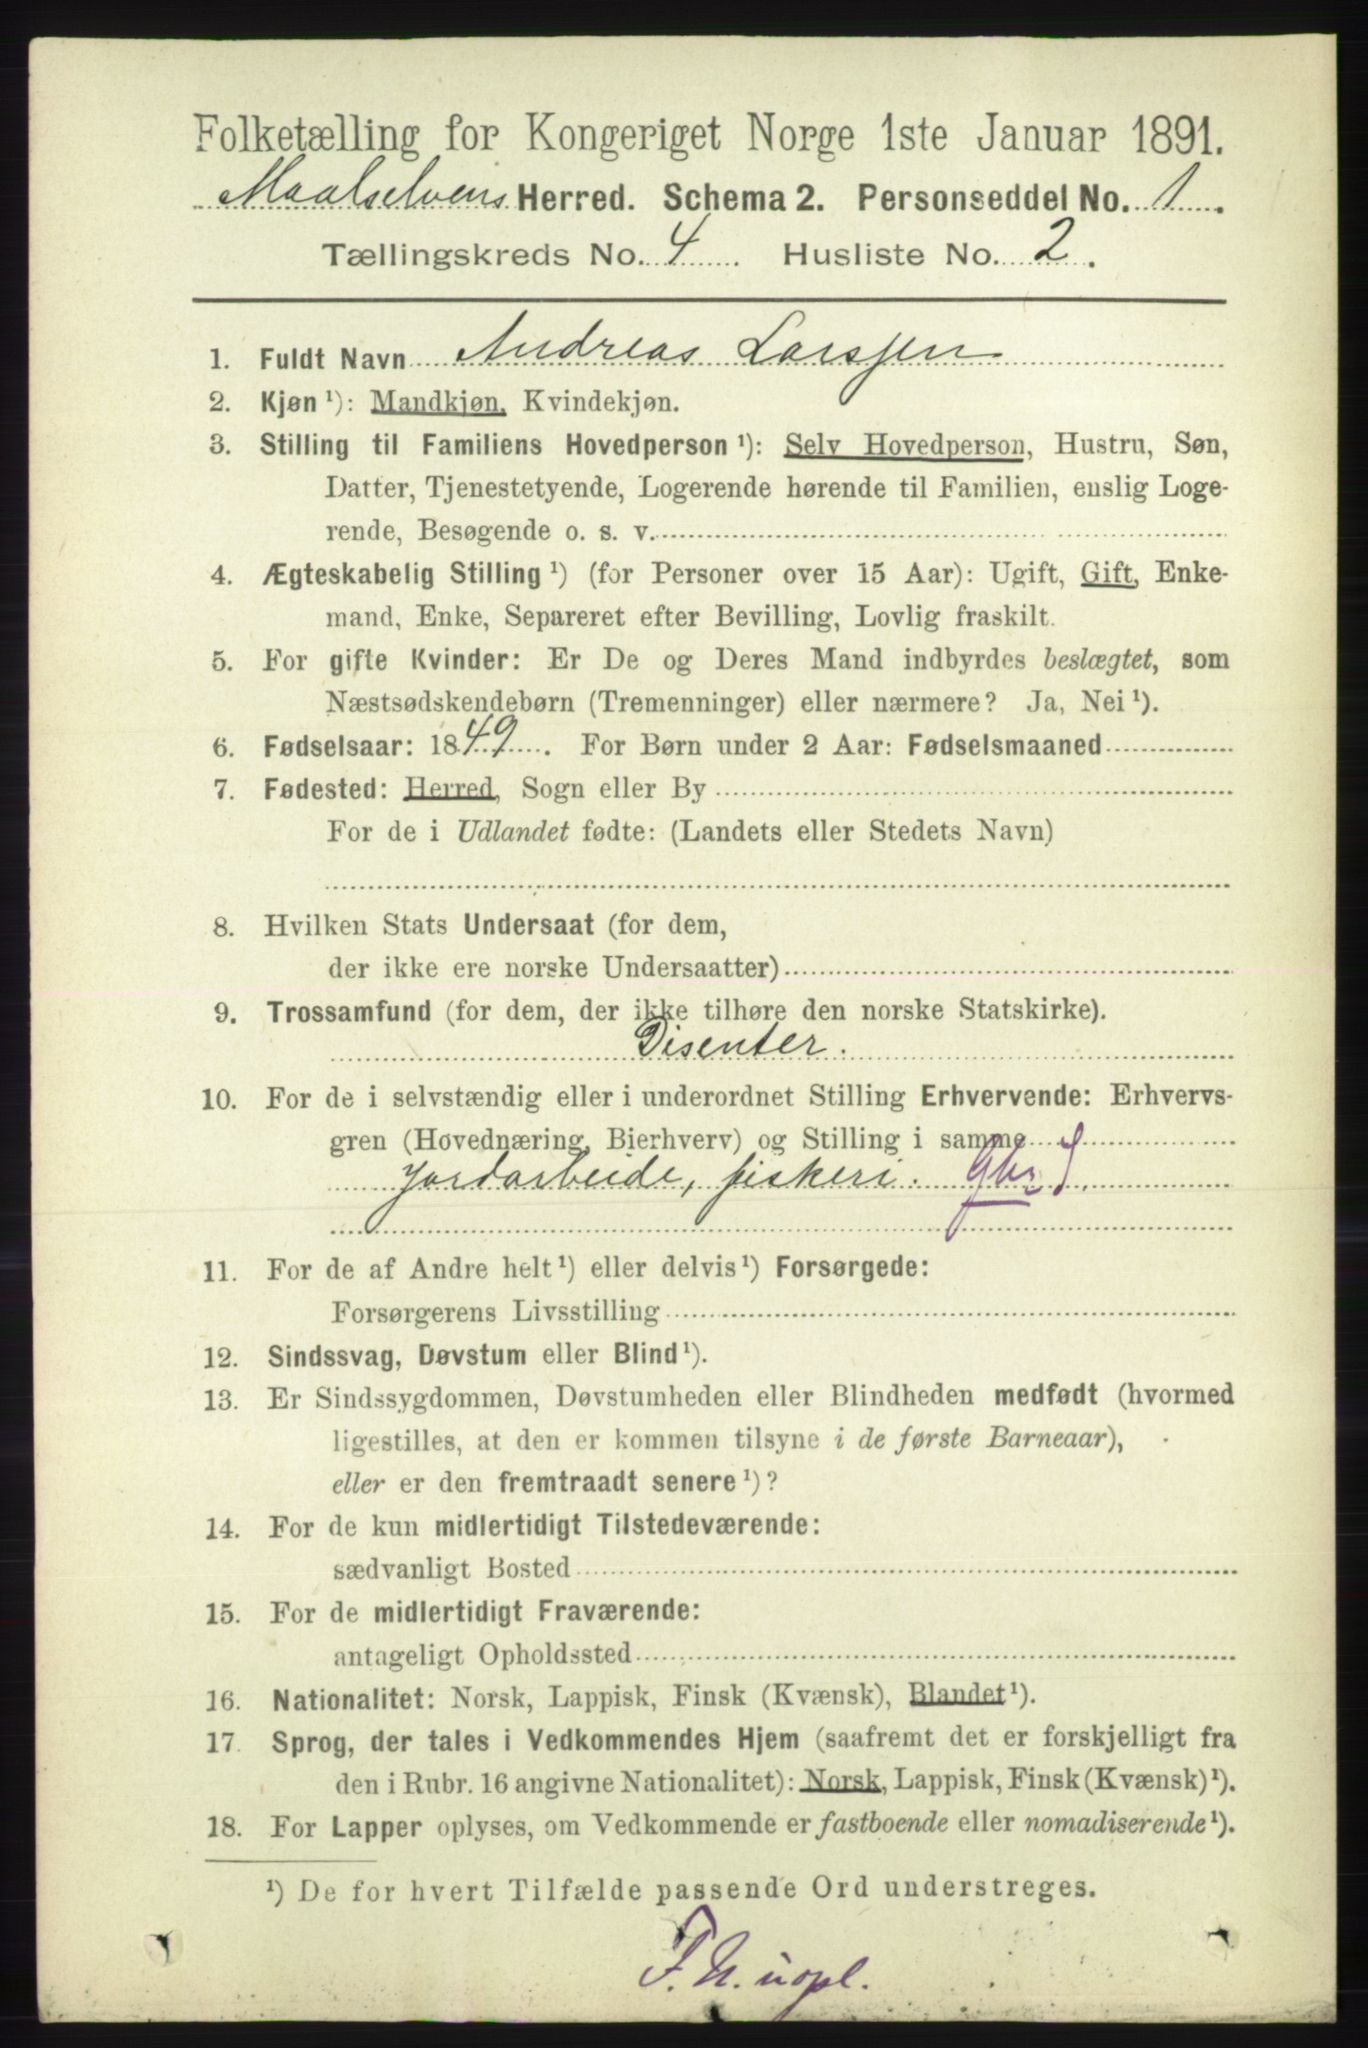 Folketælling for Kongeriget Norge 1ste Januar 1891.
Maalselvens Herred. Schema 2. Personseddel No. 1.
Tællingskreds No. 4. Husliste No. 2.
1. Fuldt Navn Andreas Larssen
2. Kjøn ¹): Mandkjøn, Kvindekjøn.
3. Stilling til Familiens Hovedperson ¹): Selv Hovedperson, Hustru, Søn,
Datter, Tjenestetyende, Logerende hørende til Familien, enslig Loge-
rende, Besøgende o. s. v.
4. Ægteskabelig Stilling ¹) (for Personer over 15 Aar): Ugift, Gift, Enke-
mand, Enke, Separeret efter Bevilling, Lovlig fraskilt.
5. For gifte Kvinder: Er De og Deres Mand indbyrdes beslægtet, som
Næstsødskendebørn (Tremenninger) eller nærmere? Ja, Nei ¹).
6. Fødselsaar: 1849. For Børn under 2 Aar: Fødselsmaaned
7. Fødested: Herred, Sogn eller By
For de i Udlandet fødte: (Landets eller Stedets Navn)
8. Hvilken Stats Undersaat (for dem,
der ikke ere norske Undersaatter)
9. Trossamfund (for dem, der ikke tilhøre den norske Statskirke).
Disenter.
10. For de i selvstændig eller i underordnet Stilling Erhvervende: Erhvervs-
gren (Hovednæring, Bierhverv) og Stilling i samme
Jordarbeide, fiskeri. Gbr
11. For de af Andre helt ¹) eller delvis ¹) Forsørgede:
Forsørgerens Livsstilling
12. Sindssvag, Døvstum eller Blind ¹).
13. Er Sindssygdommen, Døvstumheden eller Blindheden medfødt (hvormed
ligestilles, at den er kommen tilsyne i de første Barneaar),
eller er den fremtraadt senere ¹)?
14. For de kun midlertidigt Tilstedeværende:
sædvanligt Bosted
15. For de midlertidigt Fraværende:
antageligt Opholdssted
16. Nationalitet: Norsk, Lappisk, Finsk (Kvænsk), Blandet ¹).
17. Sprog, der tales i Vedkommendes Hjem (saafremt det er forskjelligt fra
den i Rubr. 16 angivne Nationalitet): Norsk, Lappisk, Finsk (Kvænsk) ¹).
18. For Lapper oplyses, om Vedkommende er fastboende eller nomadiserende ¹).
¹) De for hvert Tilfælde passende Ord understreges.
F. N. uopl.